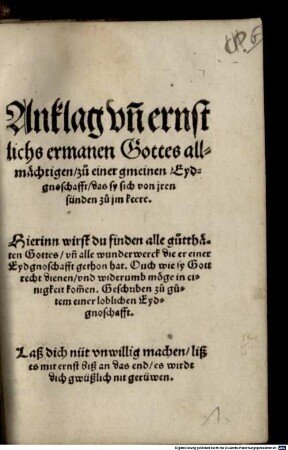 Anklag vñ ernst
lichs ermanen Gottes all-
mächtigen/zů einer gmeinen Eyd-
gnoschafft/das sy sich von jren
sünden zů jm keere.
Hierinn wirst du finden alle gůtthä-
ten Gottes/vñ alle wunderwerck die er einer
Eydgnoschafft gethon hat. Ouch wie sy Gott
recht dienen/vnd widerumb möge in ei-
nigkeit kom̃en. Geschriben zů gů-
tem einer loblichen Eyd-
gnoschafft.
Laß dich nüt vnwillig machen/liß
es mit ernst biß an das end/es wirdt
dich gwüßlich nit gerüwen.
1.